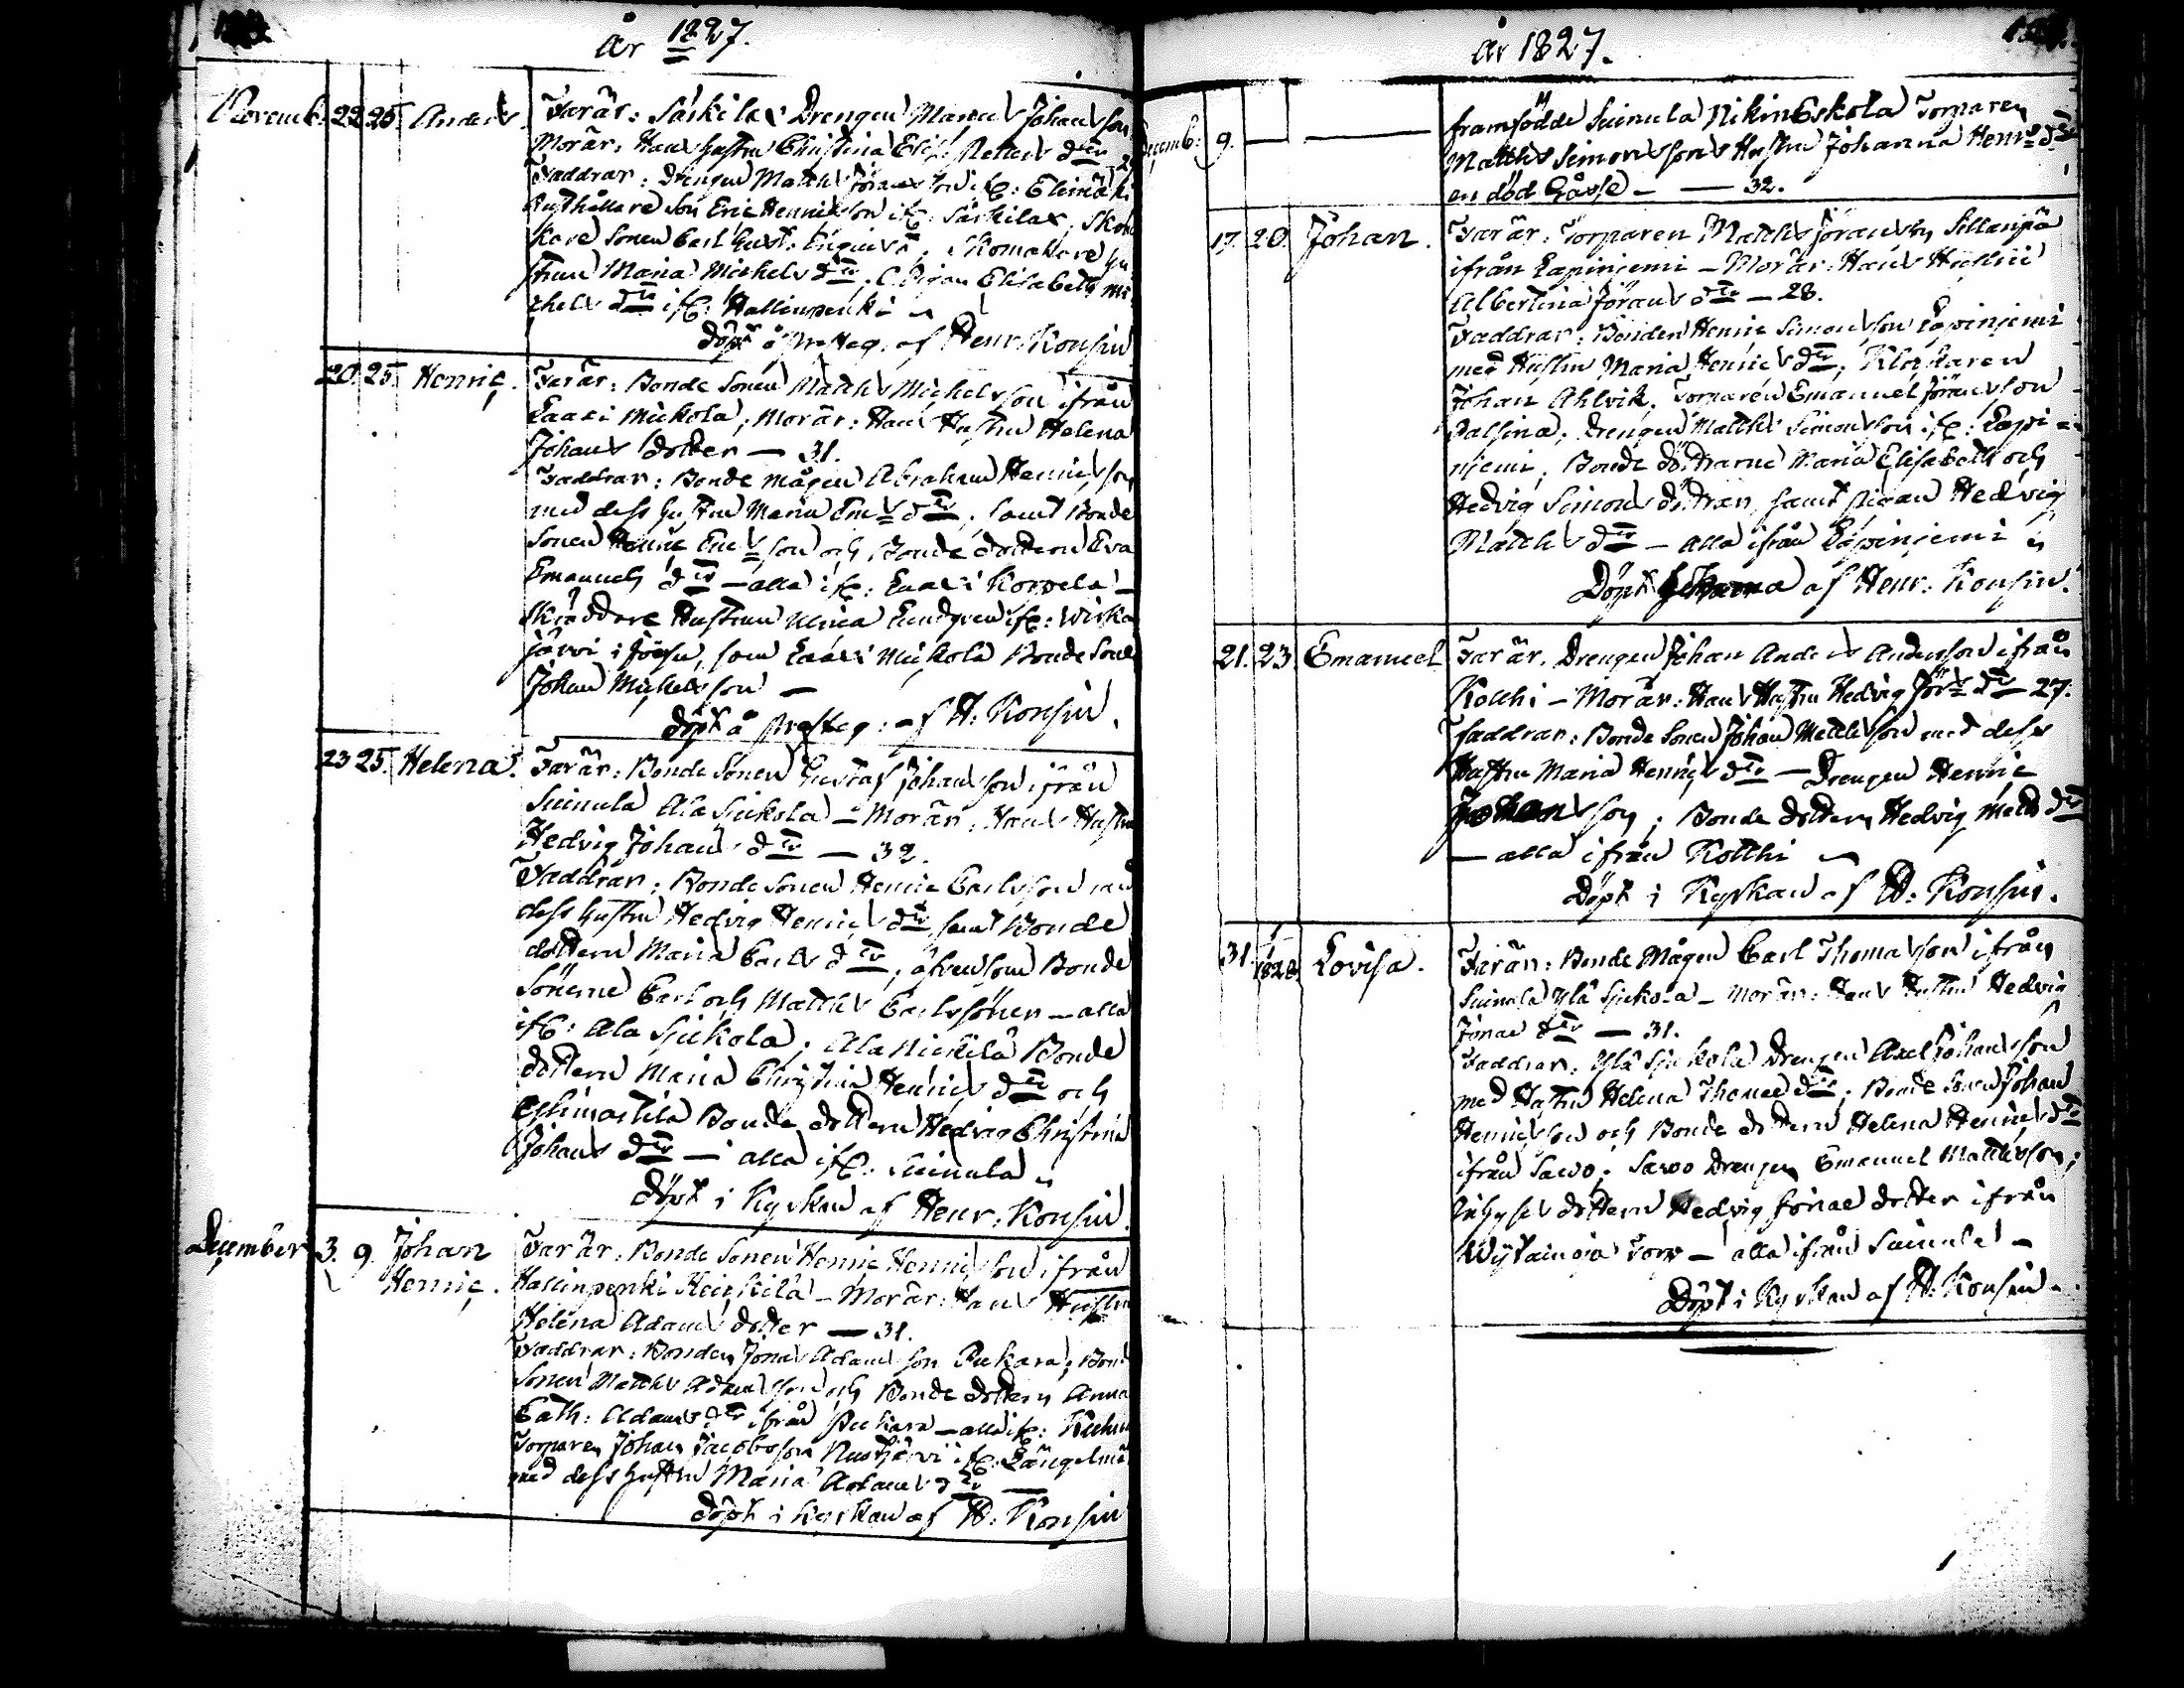 År 1827.
Novemb. 22 25. Anders. Farär: Särkilax Drengen Johansson
Morär: Hans hustru Christina dtr
Faddrar: Drengen Matths Elimäki
Son Eric Henricsson ifr: Särkilax,
Sonen Carl Gust: Skomakare hu
strun Maria Michels dtr, Pigan Elisabeth Mi
chels dtr ifr: Hallinpenki
döpt å Presteg. af Henr: Konsin
20. 25. Henric. Farär: Bonde Sonen Matths Michelsson ifrån
Laasi Mickola; Morär: Hans Hustru Helena
Johans dotter — 31.
Faddrar: Bonde mågen Abraham Henricsson
med dess hustru Maria dtr; samt Bonde
Sonen Henric son och Bonde dottern Eva
Emanuels dtr — alla ifr: Laasi Korpela —
Skräddare Hustrun Ulrica Lundgren ifr:
järvi i som Laasi Mickola Bonde Sonen
Johan Michelsson —
döpt å Presteg: af H: Konsin.
23 25. Helena. Farär: Bonde Sonen Gustaf Johansson ifrån
Suinula Ala Sjukola — Morär: Hans Hustru
Hedvig Johans dtr — 32.
Faddrar: Bonde Sonen Henric Carlsson med
dess hustru Hedvig Henrics dtr, samt Bonde
dottern Maria Carls dtr; äfvensom Bonde
Sönerne Carl och Matths Carlssöner — alla
ifr: Ala Sjukola; Ala Nickilä Bonde
dottern Maria Christina Henrics dtr och
Bonde dottern Hedvig Christina
Johans dtr — alla ifr: Suinula
döpt i Kyrkan af Henr: Konsin.
December 3. 9. Johan Farär: Bonde Sonen Henric Henricsson ifrån
Henric. Hallinpenki Heickilä — Morär: Hans Hustru
Helena Adams dotter — 31.
Faddrar: Bonden Jonas Adamsson Pukara; Bonde
Sonen Matths Adamsson och Bonde dottern Anna
Cath: Adams dtr ifrån Pukara — alla ifr:
Torparen Johan Jacobsson ifr: Längelmä
med dess hustru Maria Adams dtr —
döpt i Kyrkan af H: Konsin
År 1827.
Decemb: 9. — — framfödde Suinula Nikin Eskola Torparen
Matths Simonssons Hustru Johanna Henrs dtr
en död Gosse — — 32.
17. 20. Johan. Farär: Torparen Matths Jöransson Sillanpä
ifrån Lapinjemi — Morär: Hans Hustru
Albertina Jörans dtr — 28.
Faddrar: Bonden Henric Simonsson Lapinjemi
med Hustru Maria Henrics dtr, Klockaren
Johan Ahlvik. Torparen Emanuel Jöransson
Drengen Matths Simonsson ifr: Lapi=
njemi, Bonde döttrarne Maria Elisabeth och
Hedvig Simons döttrar, samt Pigan Hedvig
Matths dtr — alla ifrån Lapinjemi
Döpt af Henr: Konsin.
21. 23 Emanuel Farär. Drengen Johan Anders Andersson ifrån
Kolthi — Morär: Hans Hustru Hedvig Jörs dtr — 27.
Faddrar: Bonde Sonen Johan Mattsson med dess
Hustru Maria Henrics dtr — Drengen Henric
Johansson; Bonde dottern Hedvig Matts dtr
— alla ifrån Kolthi
Döpt i Kyrkan af H: Konsin.
31. 1/1828. Lovisa. Farär: Bonde Mågen Carl Thomasson ifrån
Suinula Ylä Sjukola — Morär: Hans Hustru Hedvig
Jonae dtr — 31.
Faddrar: Ylä Sjukola Drengen Axel Johansson
med Hustru Helena Thomae dtr; Bonde Sonen Johan
Henricsson och Bonde dottern Helena Henrics dtr
ifrån Sawo; Sawo Drengen Emanuel Matthsson;
Inhyses dottern Hedvig Jonae dotter ifrån
Torp — alla ifrån Suinula —
Döpt i Kyrkan af H: Konsin.